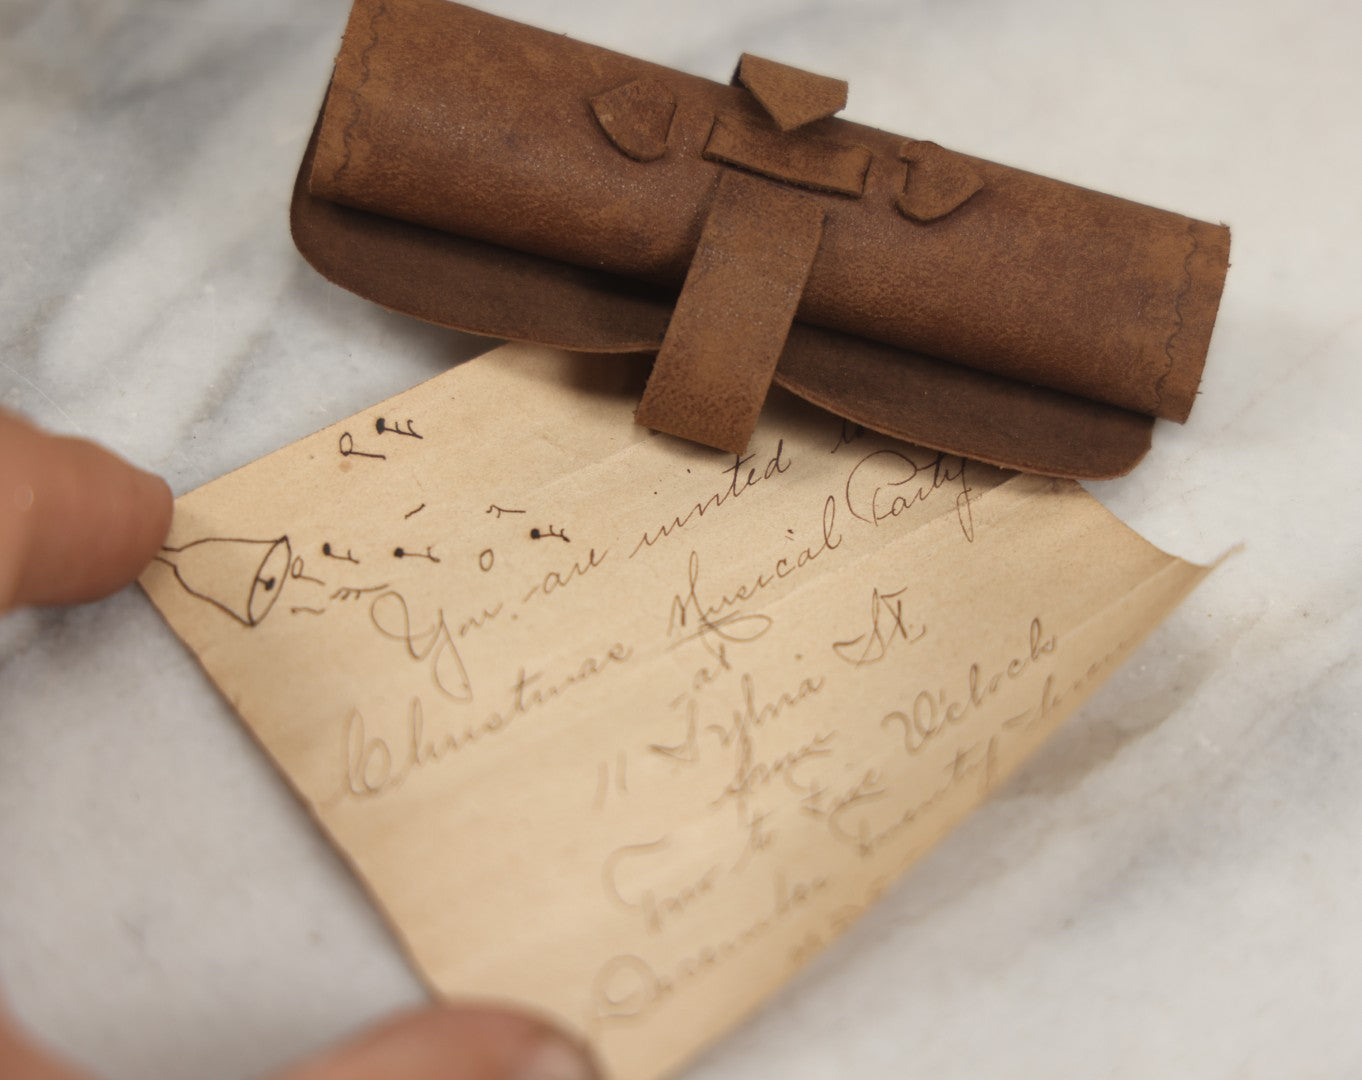 You are invited
Christmas Musical Party
at
11 Sylvia St.
from
Four to Five O'clock
December Twenty